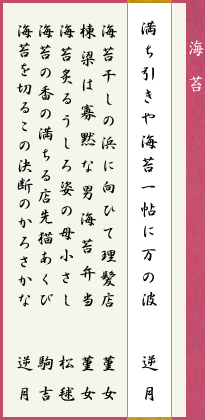 海苔
満ち引きや海苔一帖に万の波　逆月
海苔干しの浜に向ひて理髪店　菫女
棟梁は寡黙な男海苔弁当　菫女
海苔炙るうしろ姿の母小さし　松毬
海苔の香の満ちる店先猫あくび　駒吉
海苔を切るこの決断のかろさかな　逆月